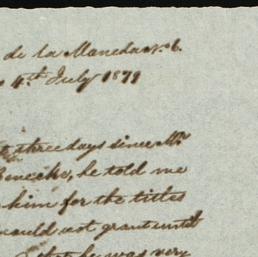 de la Mancha No. 6.
4th July 1879
three days since Mr
Benecke, he told me
him for the titles
would not grant until
he was very